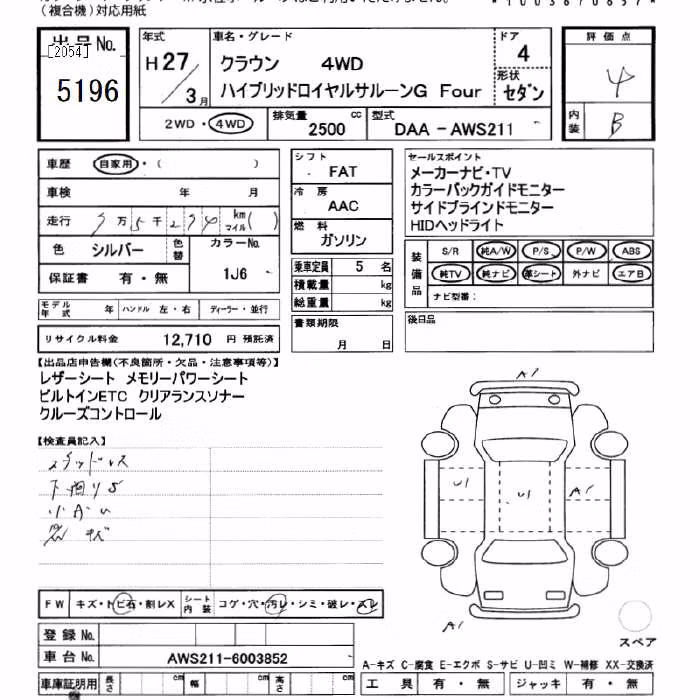 (複合機)対応用紙
出品No.
[2054]
5196
年式
H27/3月
車名・グレード
クラウン 4WD
ハイブリッドロイヤルサルーンG Four
ドア
4
形状
セダン
2WD・4WD
排気量 2500 cc
型式 DAA－AWS211
評価点
4
内装 B
車歴 自家用・( )
車検 年 月
走行 万 千 km マイル( )
色 シルバー 色替
カラーNo.
1J6
保証書 有・無
モデル年式 年 ハンドル 左・右 ディーラー・並行
リサイクル料金 12,710 円 預託済
シフト
FAT
冷房
AAC
燃料
ガソリン
乗車定員 5 名
積載量 kg
総重量 kg
書類期限
月 日
セールスポイント
メーカーナビ・TV
カラーバックガイドモニター
サイドブラインドモニター
HIDヘッドライト
装備品
S/R 純A/W P/S P/W ABS
純TV 純ナビ 革シート 外ナビ エアB
ナビ型番：
後日品
【出品店申告欄(不良箇所・欠品・注意事項等)】
レザーシート メモリーパワーシート
ビルトインETC クリアランスソナー
クルーズコントロール
【検査員記入】
スタッドレス
下廻りS
小A U
キズ
A1
U1
U1
A1
A1
スペア
FW キズ・トビ石・割レX シート内装 コゲ・穴・汚レ・シミ・破レ・スレ
登録No.
車台No. AWS211-6003852
車庫証明用 長さ cm 幅 cm 高さ cm
A-キズ C-腐食 E-エクボ S-サビ U-凹ミ W-補修 XX-交換済
工具 有・無 ジャッキ 有・無